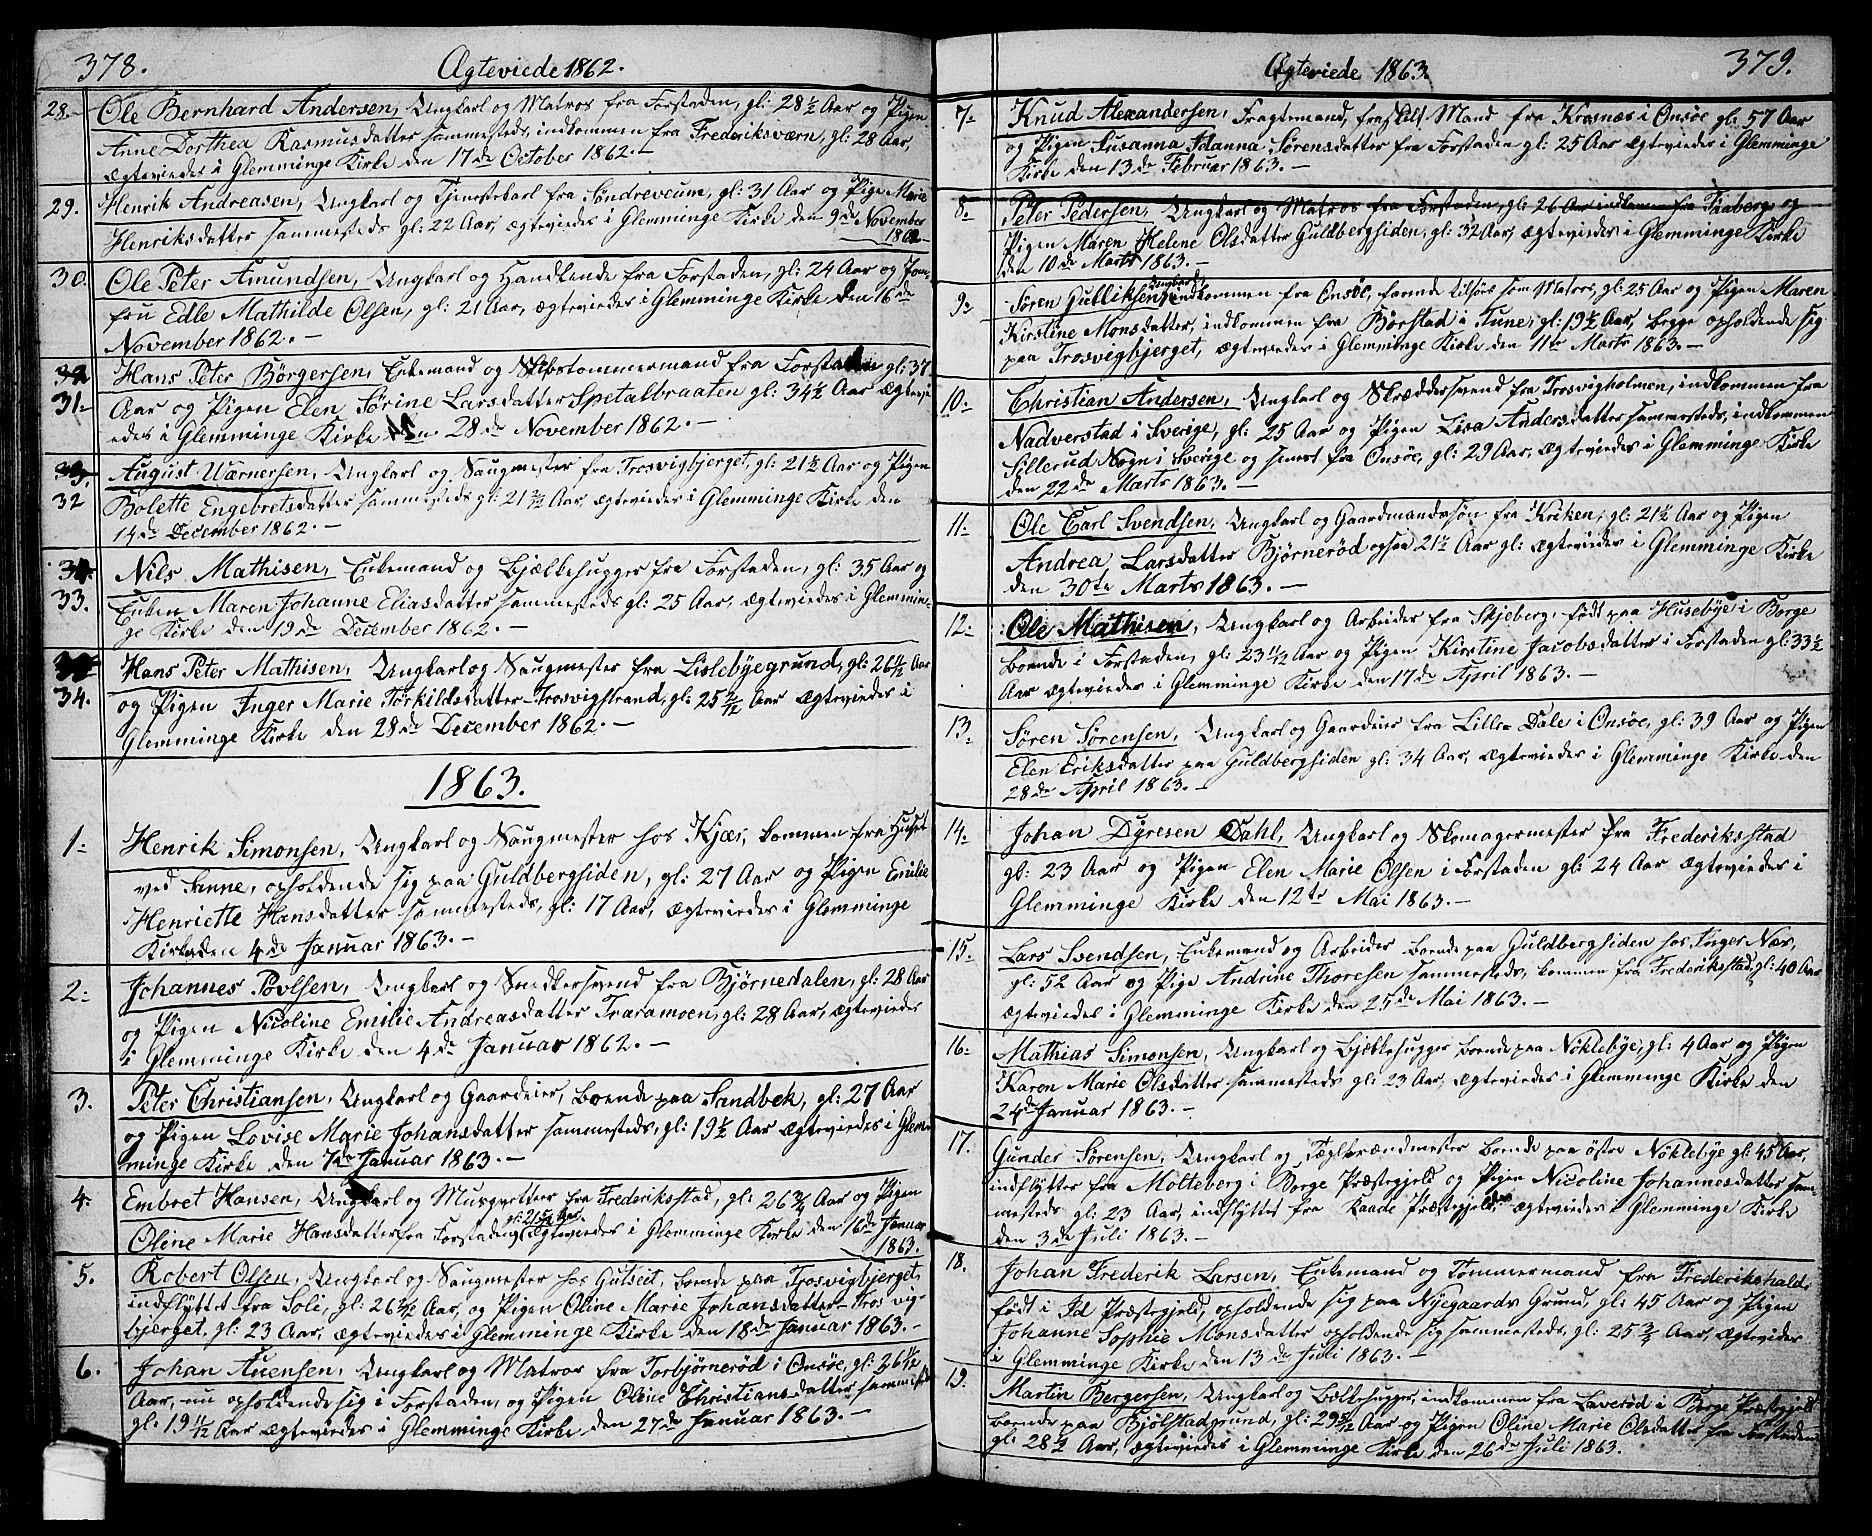 378.
Ægteviede 1862.
28. Ole Bernhard Andersen, Ungkarl og Matros fra Forstaden, gl: 28½ Aar og Pigen
Anne Dorthea Rasmusdatter sammesteds, indkommen fra Frederiksværn, gl: 28 Aar,
Ægteviedes i Glemminge Kirke den 17de October 1862.–
29. Henrik Andreasen, Ungkarl og Tjenestekarl fra Søndreveum, gl: 31 Aar og Pige Marie
Henriksdatter sammesteds gl: 22 Aar, ægteviedes i Glemminge Kirke den 9de November
1862
30. Ole Peter Amundsen, Ungkarl og Handlende fra Forstaden, gl: 24 Aar og Jom-
fru Edle Mathilde Olsen, gl: 21 Aar, ægteviedes i Glemminge Kirke den 16de
November 1862.–
31. Hans Peter Børgersen, Enkemand og Skibstømmermand fra Forstaden gl: 37
Aar og Pigen Elen Sørine Larsdatter Spetalbraaten gl: 34½ Aar Ægtevi
edes i Glemminge Kirke den 28de November 1862.–
32 August Wærnersen, Ungkarl og Saugmester fra Trosvigbjerget, gl: 21½ Aar og Pigen
Bolette Engebretsdatter sammesteds gl: 21 Aar, ægteviedes i Glemminge Kirke den
14de December 1862.–
33. Nils Mathisen, Enkemand og Bjælkehugger fra Forstaden, gl: 35 Aar og
Enken Maren Johanne Eliasdatter sammesteds gl: 25 Aar, ægteviedes i Glemmin-
ge Kirke den 19de December 1862.–
34. Hans Peter Mathisen, Ungkarl og Saugmester fra Lislebyegrund, gl: 26 Aar
og Pigen Inger Marie Torkildsdatter Trosvigstrand, gl: 25 2/12 Aar ægteviedes i
Glemminge Kirke den 28de December 1862.–
1863.
1: Henrik Simonsen, Ungkarl og Saugmester hos Kjær, kommen fra Huset
ved Sanne, opholdende sig paa Guldbergsiden, gl: 27 Aar og Pigen Emilie
Henriette Hansdatter sammesteds, gl: 17 Aar, ægteviedes i Glemminge
Kirke den 4de Januar 1863.–
2: Johannes Povlsen, Ungkarl og Snedkersvend fra Bjørnedalen, gl: 28 Aar
og Pigen Nicoline Emilie Andreasdatter Traramoen, gl: 28 Aar, ægteviedes
i Glemminge Kirke den 4de Januar 1862.–
3. Peter Christiansen, Ungkarl og Gaardeier, boende paa Sandbek, gl: 27 Aar
og Pigen Lovise Marie Johansdatter sammesteds, gl: 19½ Aar ægteviedes i Glem-
minge Kirke den 7de Januar 1863.–
4. Embret Hansen, Ungkarl og Musqvetter fra Frederiksstad, gl: 26¾ Aar og Pigen
Oline Marie Hansdatter fra Forstaden, gl: 21 Aar. Ægteviedes i Glemminge Kirke den 16de Januar
1863.
5. Robert Olsen, Ungkarl og Saugmester hos Gutseit, boende paa Trosvigbjerget,
indflyttet fra Soli, gl: 26 Aar, og Pigen Oline Marie Johansdatter Trosvig-
bjerget, gl: 23 Aar, ægteviedes i Glemminge Kirke den 18de Januar 1863.–
6. Johan Auensen, Ungkarl og Matros fra Torbjørnerød i Onsøe, gl: 26 11/12
Aar, nu opholdende sig i Forstaden, og Pigen Oline Christiansdatter, sammesteds
gl: 19 11/12 Aar ægteviedes i Glemminge Kirke den 27de Januar 1863.–
379.
Ægteviede 1863.
7. Knud Alexandersen, Fragtemand, fraskilt Mand fra Krosnæs i Onsøe gl: 57 Aar
og Pigen Susanna Johanna Sørensdatter fra Forstaden gl: 25 Aar Ægteviedes i Glemminge
Kirke den 13de Februar 1863.–
8. Peter Pedersen, Ungkarl og Matros fra Forstaden, gl: 26 Aar indkommen fra Faaberg og
Pigen Maren Helene Olsdatter Guldbergsiden, gl: 32 Aar, ægteviedes i Glemminge Kirke
den 10de Marts 1863.–
9. Søren Gulliksen, Ungkarl indkommen fra Onsøe, farende tilsøs som Matros, gl: 25 Aar og Pigen Maren
Kirstine Monsdatter, indkommen fra Børstad i Tune, gl: 19½ Aar, begge opholdende sig
paa Trosvigbjerget, ægteviedes i Glemminge Kirke den 11te Marts 1863.–
10: Christian Andersen, Ungkarl og Skræddersvend fra Trosvigholmen, indkommen fra
Nadverstad i Sverige, gl: 25 Aar og Pigen Lisa Andersdatter sammesteds, indkommen
Sillerud Sogn i Sverige og senest fra Onsøe, gl: 29 Aar, Ægteviedes i Glemminge Kirke
den 22de Marts 1863.–
11: Ole Carl Svendsen, Ungkarl og Gaardmandssøn fra Kriken, gl: 21½ Aar og Pigen
Andrea Larsdatter Bjørnerød ogsaa 21½ Aar gl: ægteviedes i Glemminge Kirke
den 30te Marts 1863.–
12: Ole Mathisen, Ungkarl og Arbeider fra Skjeberg, født paa Husebye i Borge
boende i Forstaden, gl: 23 11/12 Aar og Pigen Kirstine Jacobsdatter i Forstaden gl: 33½
Aar ægteviedes i Glemminge Kirke den 17de April 1863.–
13. Søren Sørensen, Ungkarl og Gaardeier fra Lille Dale i Onsøe, gl: 39 Aar og Pigen
Elen Eriksdatter paa Guldbergsiden gl: 34 Aar, ægteviedes i Glemminge Kirke den
28de April 1863.–
14. Johan Dyresen Dahl, Ungkarl og Skomagermester fra Frederiksstad
gl: 23 Aar og Pigen Elen Marie Olsen i Forstaden gl: 24 Aar ægteviedes i
Glemminge Kirke den 12te Mai 1863.–
15: Lars Svendsen, Enkemand og Arbeider boende paa Guldbergsiden hos Inger Næs,
gl: 52 Aar og Pige Andrine Thoresen sammesteds, kommen fra Frederiksstad, gl: 40 Aar
ægteviedes i Glemminge Kirke den 25de Mai 1863.–
16: Mathias Simonsen, Ungkarl og Bjælkehugger boende paa Nøklebye, gl: 4 Aar og Pigen
Karen Marie Olsdatter sammesteds gl: 23 Aar, ægteviedes i Glemminge Kirke den
24de Januar 1863.–
17. Gunder Sørensen, Ungkarl og Teglbrændmester boende paa østre Nøklebye gl: 45 Aar,
indflyttet fra Molteberg i Borge Præstegjeld og Pigen Nicoline Johannesdatter sam-
mesteds gl: 23 Aar, indflyttet fra Raade Præstegjeld, ægteviedes i Glemminge Kirke
den 3de Juli 1863.–
18. Johan Frederik Larsen, Enkemand og Tømmermand fra Frederikshald,
født i Id Præstegjeld, opholdende sig paa Nyegaards Grund, gl: 45 Aar og Pigen
Johanne Sophie Monsdatter opholdende sig sammesteds, gl: 25¾ Aar, ægteviedes
i Glemminge Kirke den 13de Juli 1863.–
19. Martin Bergersen, Ungkarl og Bælkehugger, indkommen fra Laverød i Borge Præstegjeld
boende paa Bjølstadgrund, gl: 29 Aar og Pigen Oline Marie Olsdatter fra Forstaden
gl: 28½ Aar, ægteviedes i Glemminge Kirke den 26de Juli 1863.